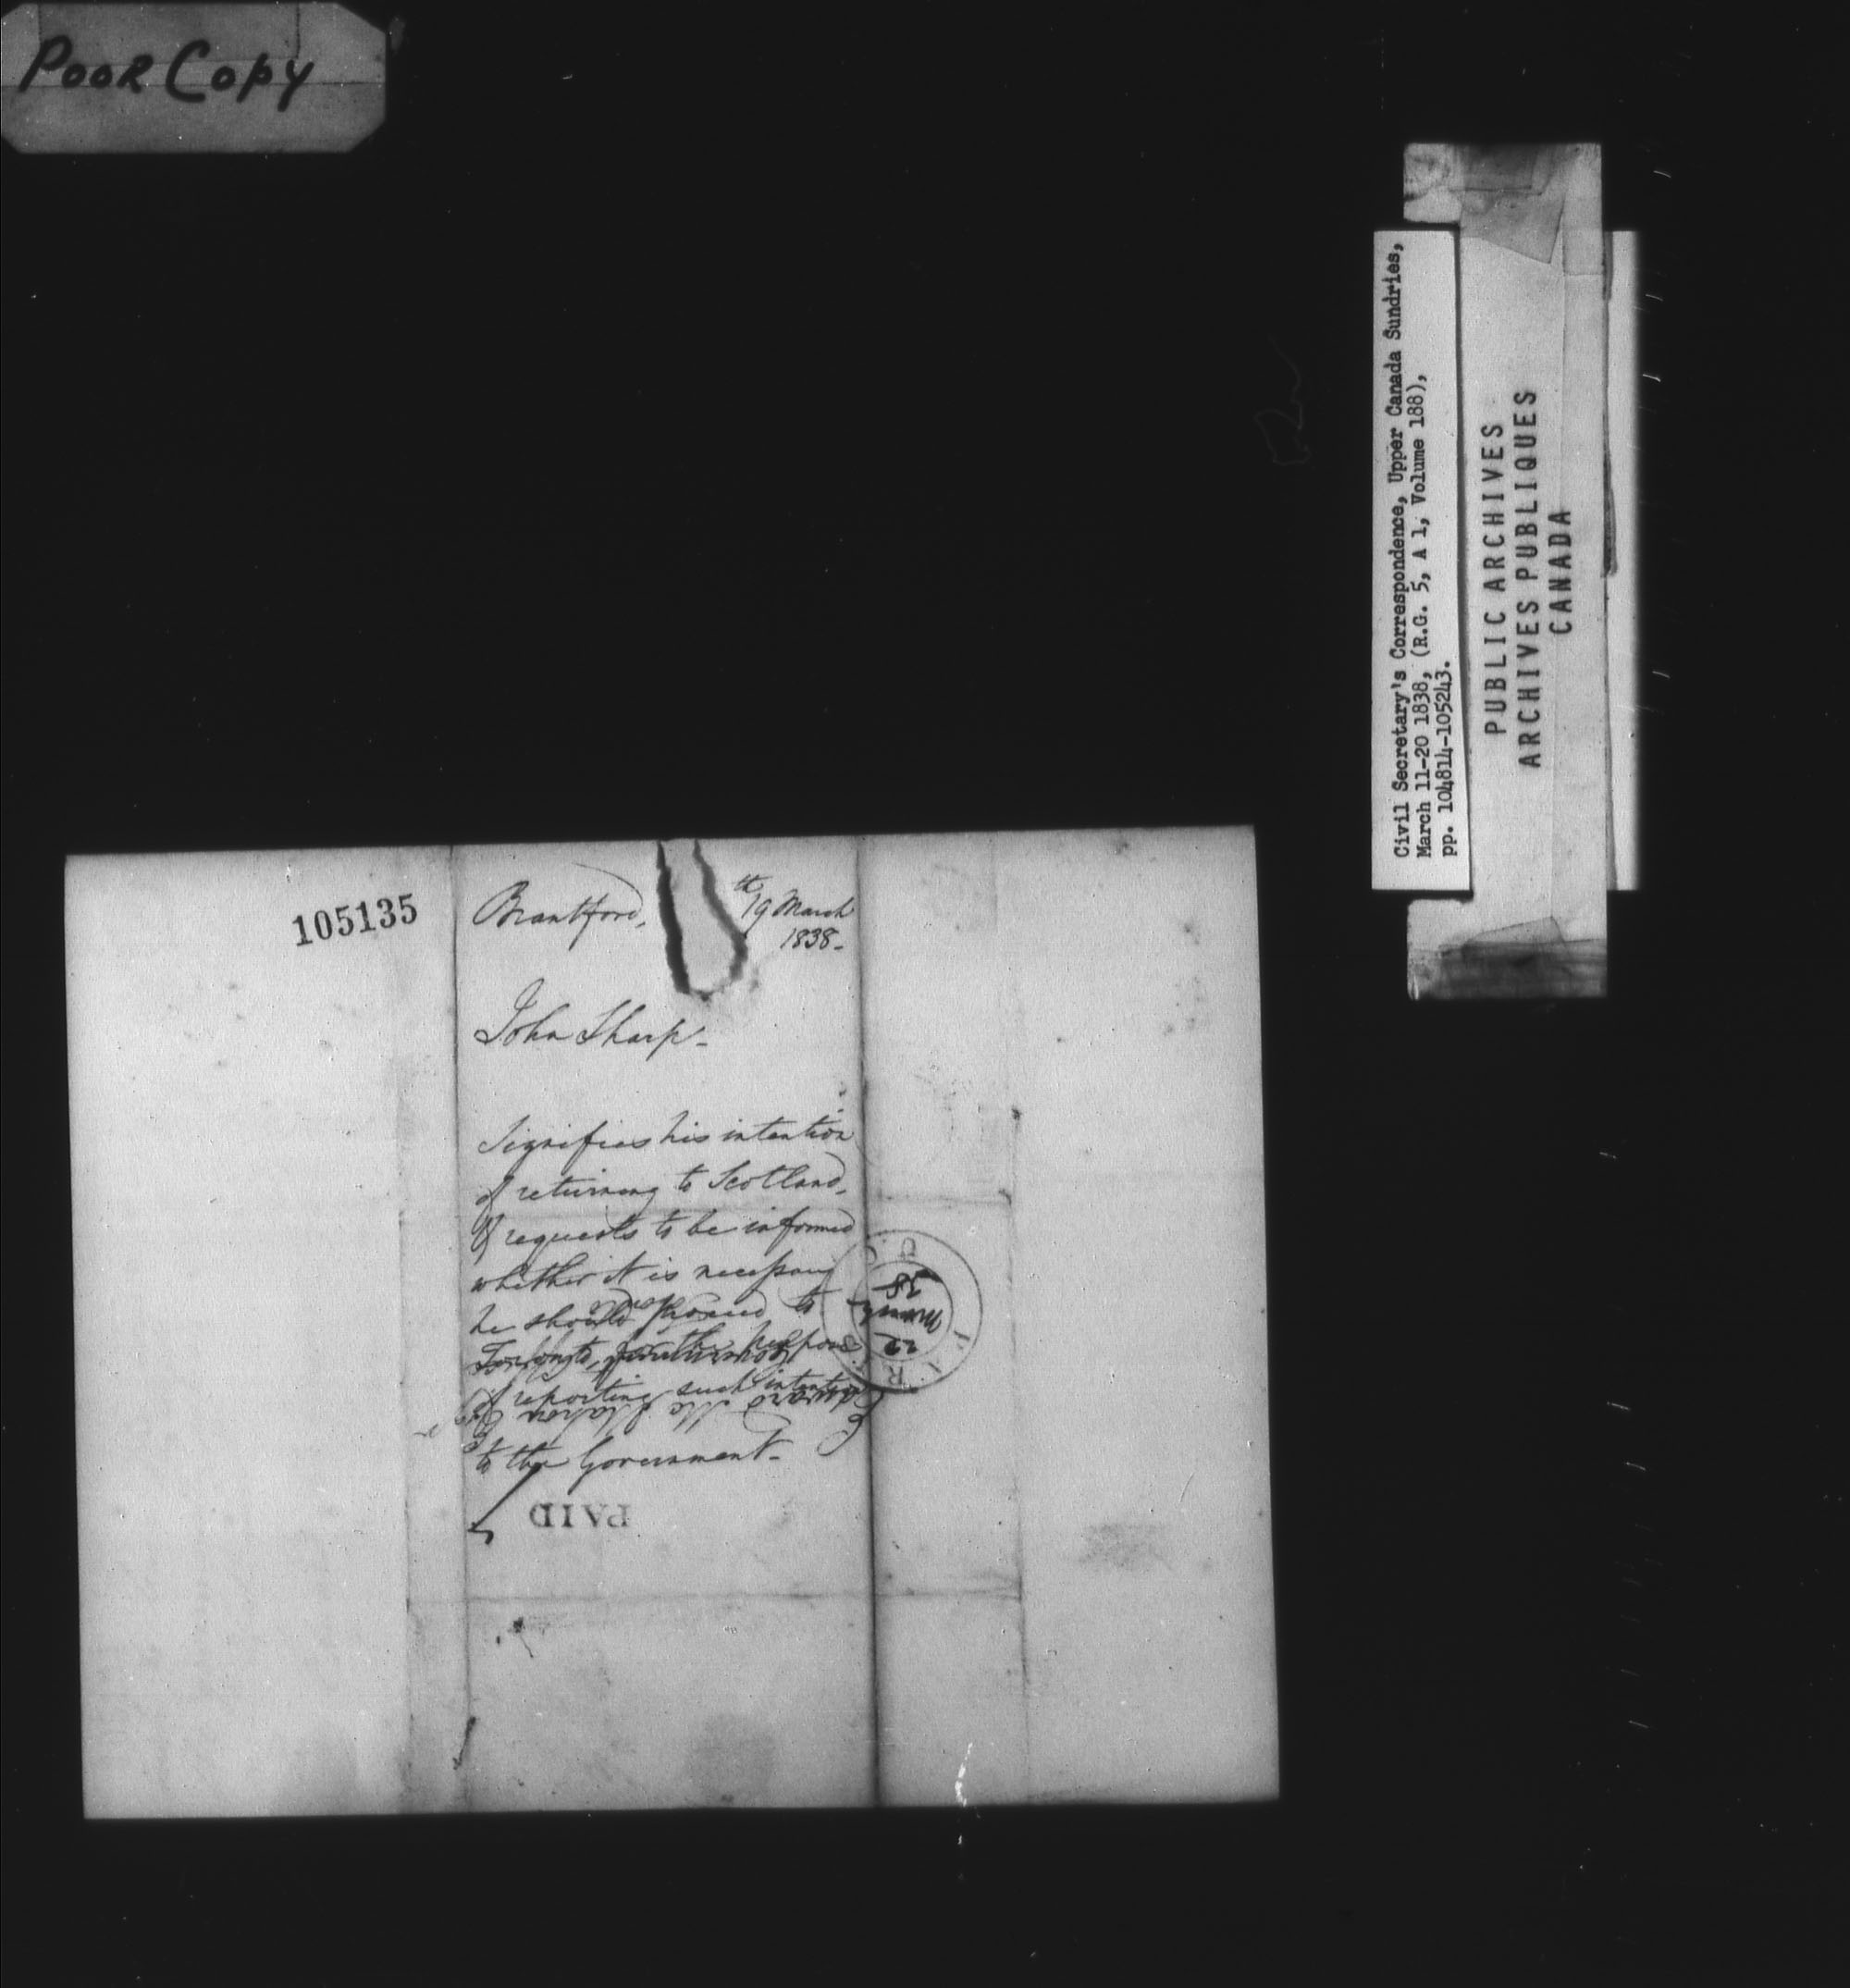 Poor Copy
Civil Secretary's Correspondence, Upper Canada Sundries,
March 11-20 1838, (R.G. 5, A 1, Volume 188),
pp. 104814-105243.
PUBLIC ARCHIVES
ARCHIVES PUBLIQUES
CANADA
105135
Brantford, 19th March
1838-
John Sharp-
Signifies his intention
of returning to Scotland,
& requests to be informed
whether it is necessary
he should proceed to
Toronto, for the purpose
of reporting such intention
to the Government-
Edward McMahon Esq
PAID
22
March
38